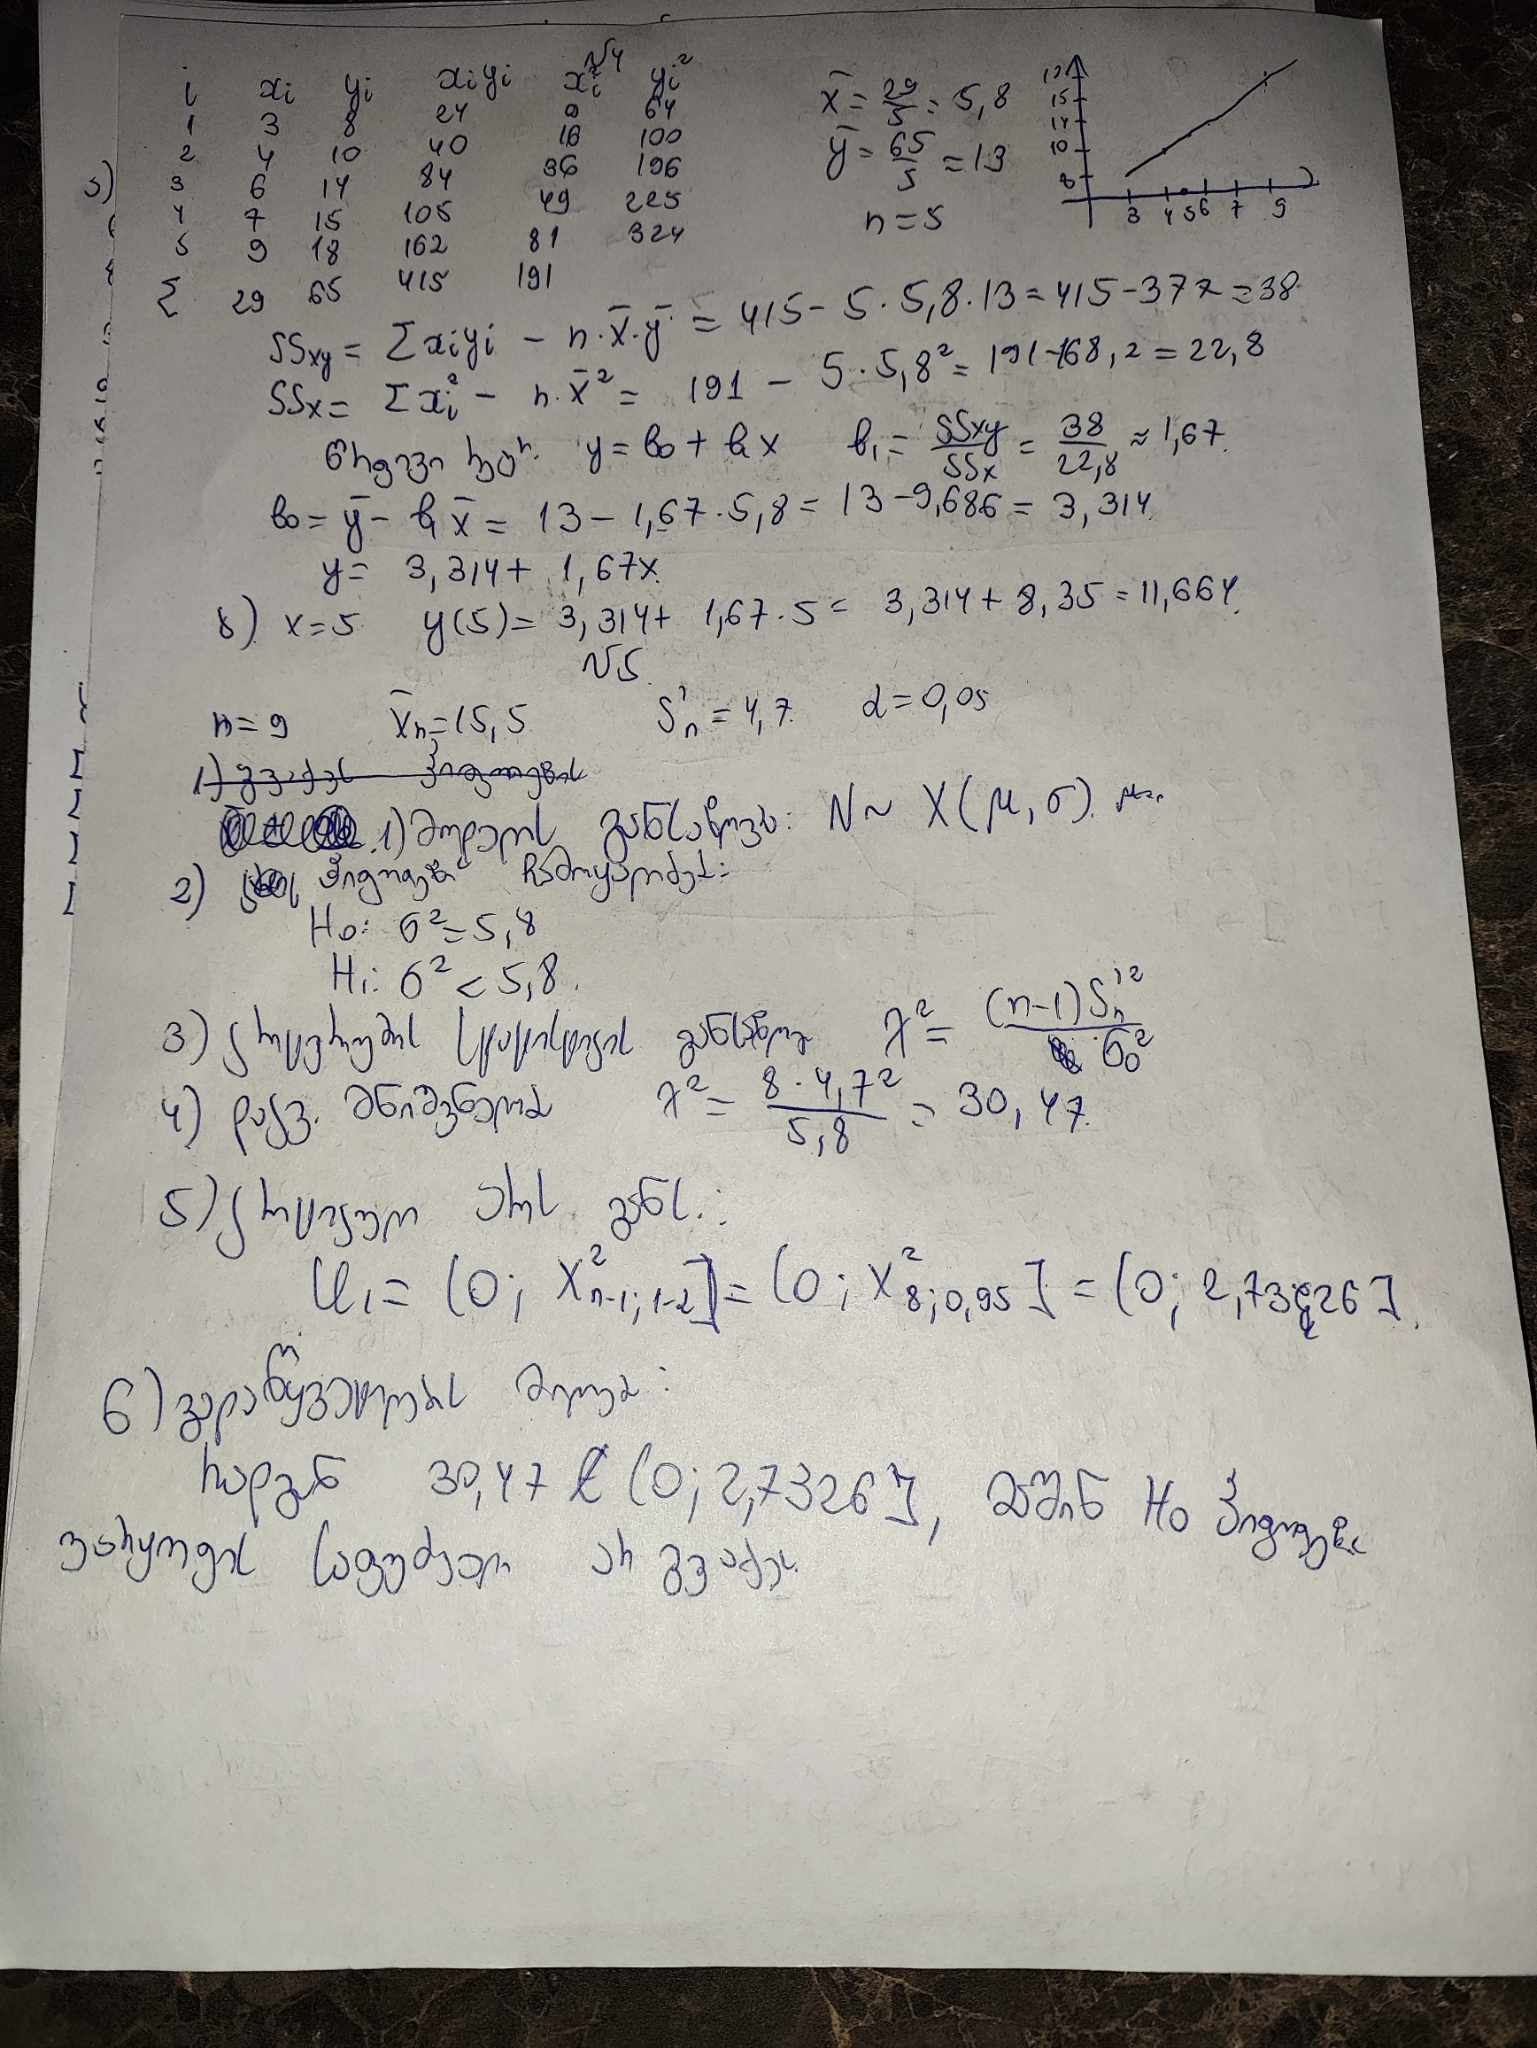 N4
i xi yi xiyi xi² yi²
1 3 8 24 9 64
2 4 10 40 16 100
3 6 14 84 36 196
4 7 15 105 49 225
5 9 18 162 81 324
Σ 29 65 415 191
x̄ = 29/5 = 5,8
ȳ = 65/5 = 13
n=5
15
14
10
8
3 4 5 6 7 9
SSxy = Σxiyi - n·x̄·ȳ = 415 - 5·5,8·13 = 415 - 377 = 38
SSx = Σxi² - n·x̄² = 191 - 5·5,8² = 191-168,2 = 22,8
წრფივი y = b0 + b1x b1 = SSxy/SSx = 38/22,8 ≈ 1,67.
b0 = ȳ - b1x̄ = 13 - 1,67·5,8 = 13 - 9,686 = 3,314.
y = 3,314 + 1,67x.
ბ) x=5 y(5) = 3,314 + 1,67·5 = 3,314 + 8,35 = 11,664.
N5.
n=9 x̄n=15,5 S'n = 4,7. α=0,05
1) გვაქვს ჰიპოთეზის
1) მოდელის განსაზღვა: N ~ X(μ, σ).
2) ჰიპოთეზის ჩამოყალიბება:
H0: σ²=5,8
H1: σ² < 5,8.
3) კრიტერიუმის სტატისტიკის განსაზღვ χ² = (n-1)S'n²/σ0²
4) დაკვ. მნიშვნელობა χ² = 8·4,7²/5,8 = 30,47.
5) კრიტიკული არის განს.:
U1 = (0; χ²n-1;1-α] = (0; χ²8;0,95] = (0; 2,7326].
6) გადაწყვეტილების მიღება:
რადგან 30,47 ∉ (0; 2,7326], მაშინ H0 ჰიპოთეზის
უარყოფის საფუძველი არ გვაქვს.